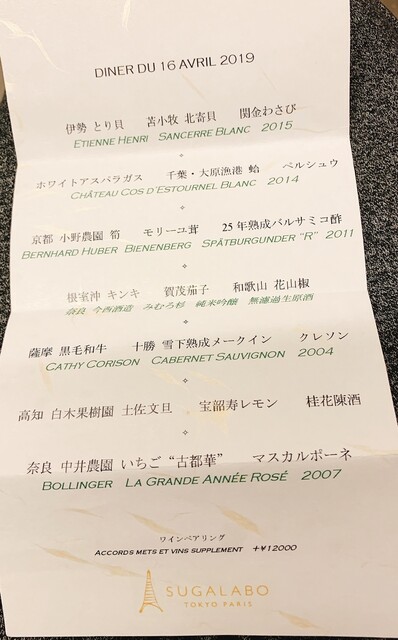 DINER DU 16 AVRIL 2019
伊勢 とり貝　苫小牧 北寄貝　関金わさび
ETIENNE HENRI SANCERRE BLANC 2015
ホワイトアスパラガス　千葉・大原漁港 蛤　ペルシュウ
CHÂTEAU COS D'ESTOURNEL BLANC 2014
京都 小野農園 筍　モリーユ茸　25年熟成バルサミコ酢
BERNHARD HUBER BIENENBERG SPÄTBURGUNDER "R" 2011
根室沖 キンキ　賀茂茄子　和歌山 花山椒
奈良 今西酒造 みむろ杉 純米吟醸 無濾過生原酒
薩摩 黒毛和牛　十勝 雪下熟成メークイン　クレソン
CATHY CORISON CABERNET SAUVIGNON 2004
高知 白木果樹園 土佐文旦　宝韶寿レモン　桂花陳酒
奈良 中井農園 いちご"古都華"　マスカルポーネ
BOLLINGER LA GRANDE ANNÉE ROSÉ 2007
ワインペアリング
ACCORDS METS ET VINS SUPPLEMENT +¥12000
SUGALABO
TOKYO PARIS